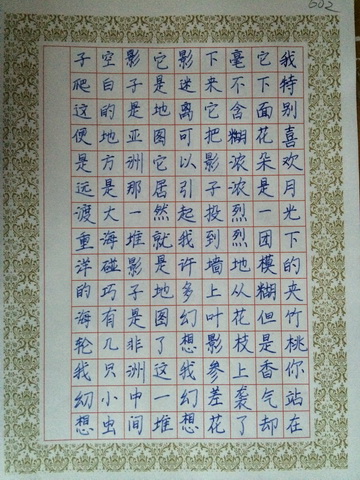 我特别喜欢月光下的夹竹桃你站在
它下面花朵是一团模糊但是香气却
毫不含糊浓浓烈烈地从花枝上袭了
下来它把影子投到墙上叶影参差花
影迷离可以引起我许多幻想我幻想
它是地图它居然就是地图了这一堆
影子是亚洲那一堆影子是非洲中间
空白的地方是大海碰巧有几只小虫
子爬这便是远渡重洋的海轮我幻想